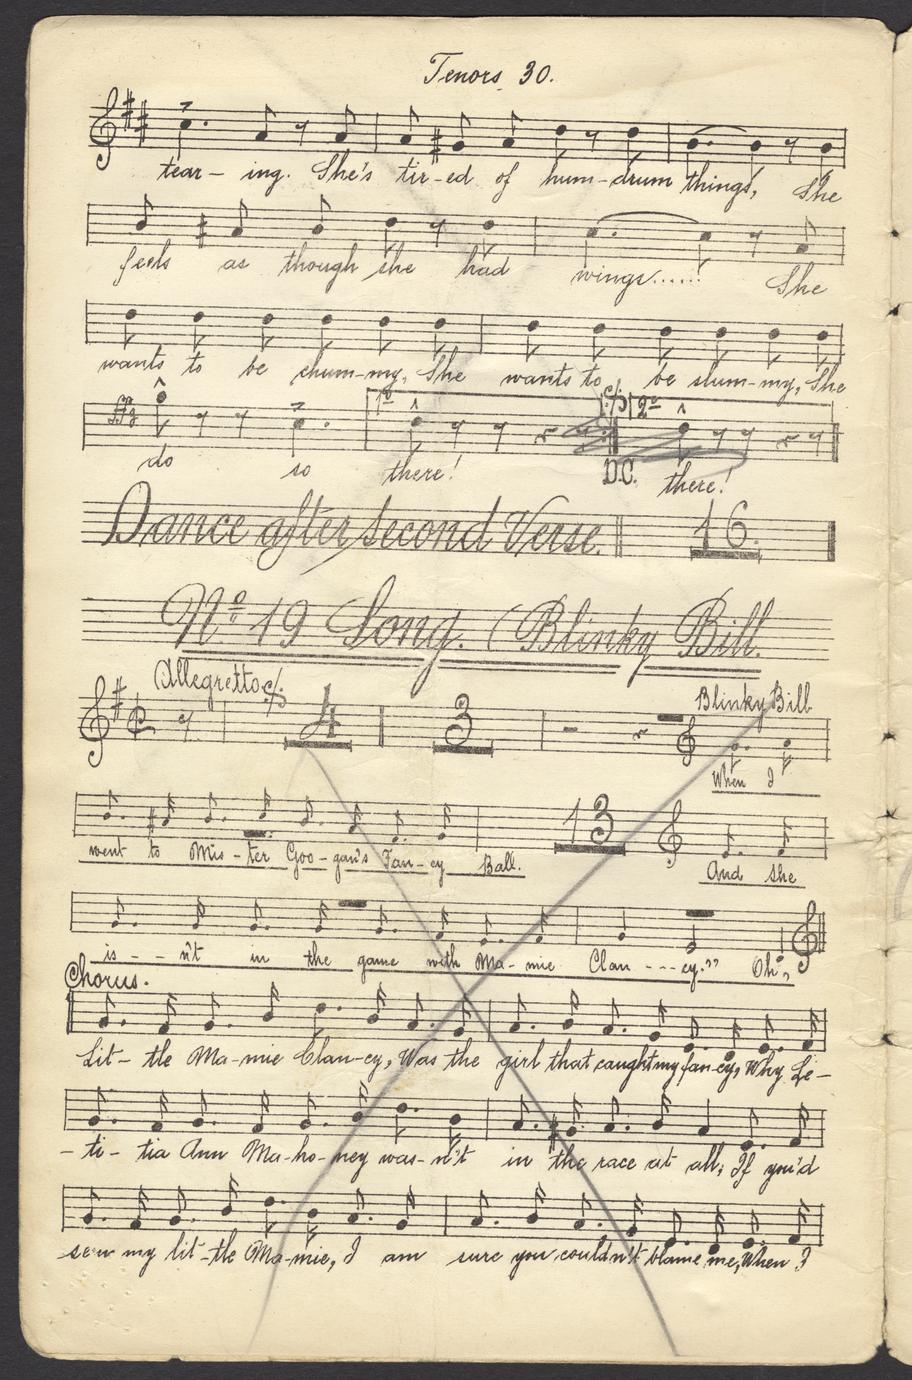 Tenors. 30.
tear- ing. She's tir-ed of hum-drum things, She
feels as though she had wings......! She
wants to be chum-my, She wants to be slum-my, She
1º 2º
do so there! D.C. there!
Dance after second Verse. 16
Nº 19 Song. (Blinky Bill.
Allegretto
4 3 Blinky Bill
When I
13
went to Mis-ter Goo-gan's Fan-cy Ball. And she
is - - n't in the game with Ma-mie Clan---cy." Oh,
Chorus.
Lit-tle Ma-mie Clan-cy, Was the girl that caught my fan-cy, Why Le-
-ti-tia Ann Ma-ho-ney was-n't in the race at all; If you'd
seen my lit-tle Ma-mie, I am sure you couldn't blame me, When I